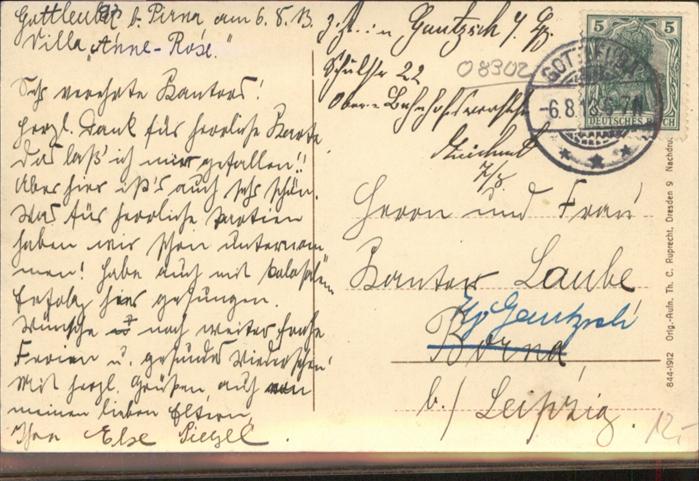 Gottleuba b. Pirna am 6.8.13
Villa "Anne-Rose."
Sehr verehrte Kantors!
Herzl. Dank für herrliche Karte
Das laß' ich mir gefallen!!
Aber hier ist's auch sehr schön.
Was für herrliche Partien
haben wir schon unternom
men! Habe auch mit kolossalem
Erfolg hier gesungen.
Wünsche noch weiter frohe
Ferien u. gesundes Wiedersehen!
Mit herzl. Grüßen auch von
meinen lieben Eltern
Ihre Else Siegel.
z. Zt. in Gautzsch b/ Lpz
Schulstr 22
Ober-Bahnhofsvorsteher
08302
5 5
DEUTSCHES REICH
GOTTLEUBA
-6.8.13.6-7N.
Herrn und Frau
Kantor Laube
Gautzsch
Borna
b./ Leipzig.
12,-
844-1912 Orig.-Aufn. Th. C. Ruprecht, Dresden 9 Nachdru